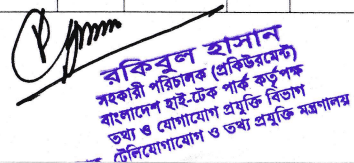 রকিবুল হাসান
সহকারী পরিচালক (প্রকিউরমেন্ট)
বাংলাদেশ হাই-টেক পার্ক কর্তৃপক্ষ
তথ্য ও যোগাযোগ প্রযুক্তি বিভাগ
টেলিযোগাযোগ ও তথ্য প্রযুক্তি মন্ত্রণালয়